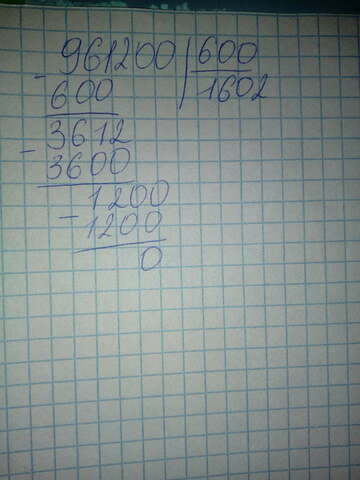 961200 600
- 600 1602
3612
- 3600
1200
- 1200
0